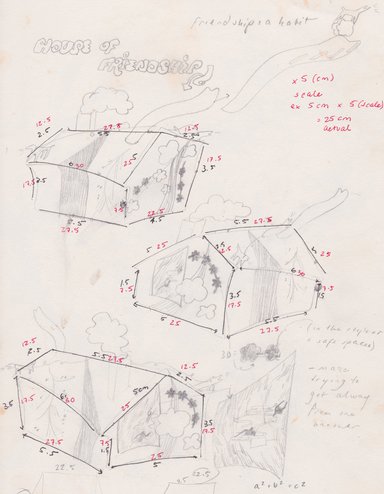 friendship is a habit
HOUSE OF
FRIENDSHIP
x 5 (cm)
scale
ex 5cm x 5 (scale)
= 25 cm
actual
12.5
2.5
27.5
5.5
12.5
2.5
17.5
6
30
25
5
17.5
3.5
7.5
22.5
4.5
5.5
27.5
5.5
27.5
5
25
3.5
12.5
5
25
1.5
7.5
6
30
3.5
17.5
7.5
5
25
5.5
27.5
12.5
2.5
5.5
27.5
12.5
2.5
6
30
5cm
25
3.5
17.5
3.5
17.5
7.5
1.5
5.5
27.5
25
5
22.5
22.5
30
(in the
safe spaces)
- maze
trying to
get away
from one
another
a² + b² = c²